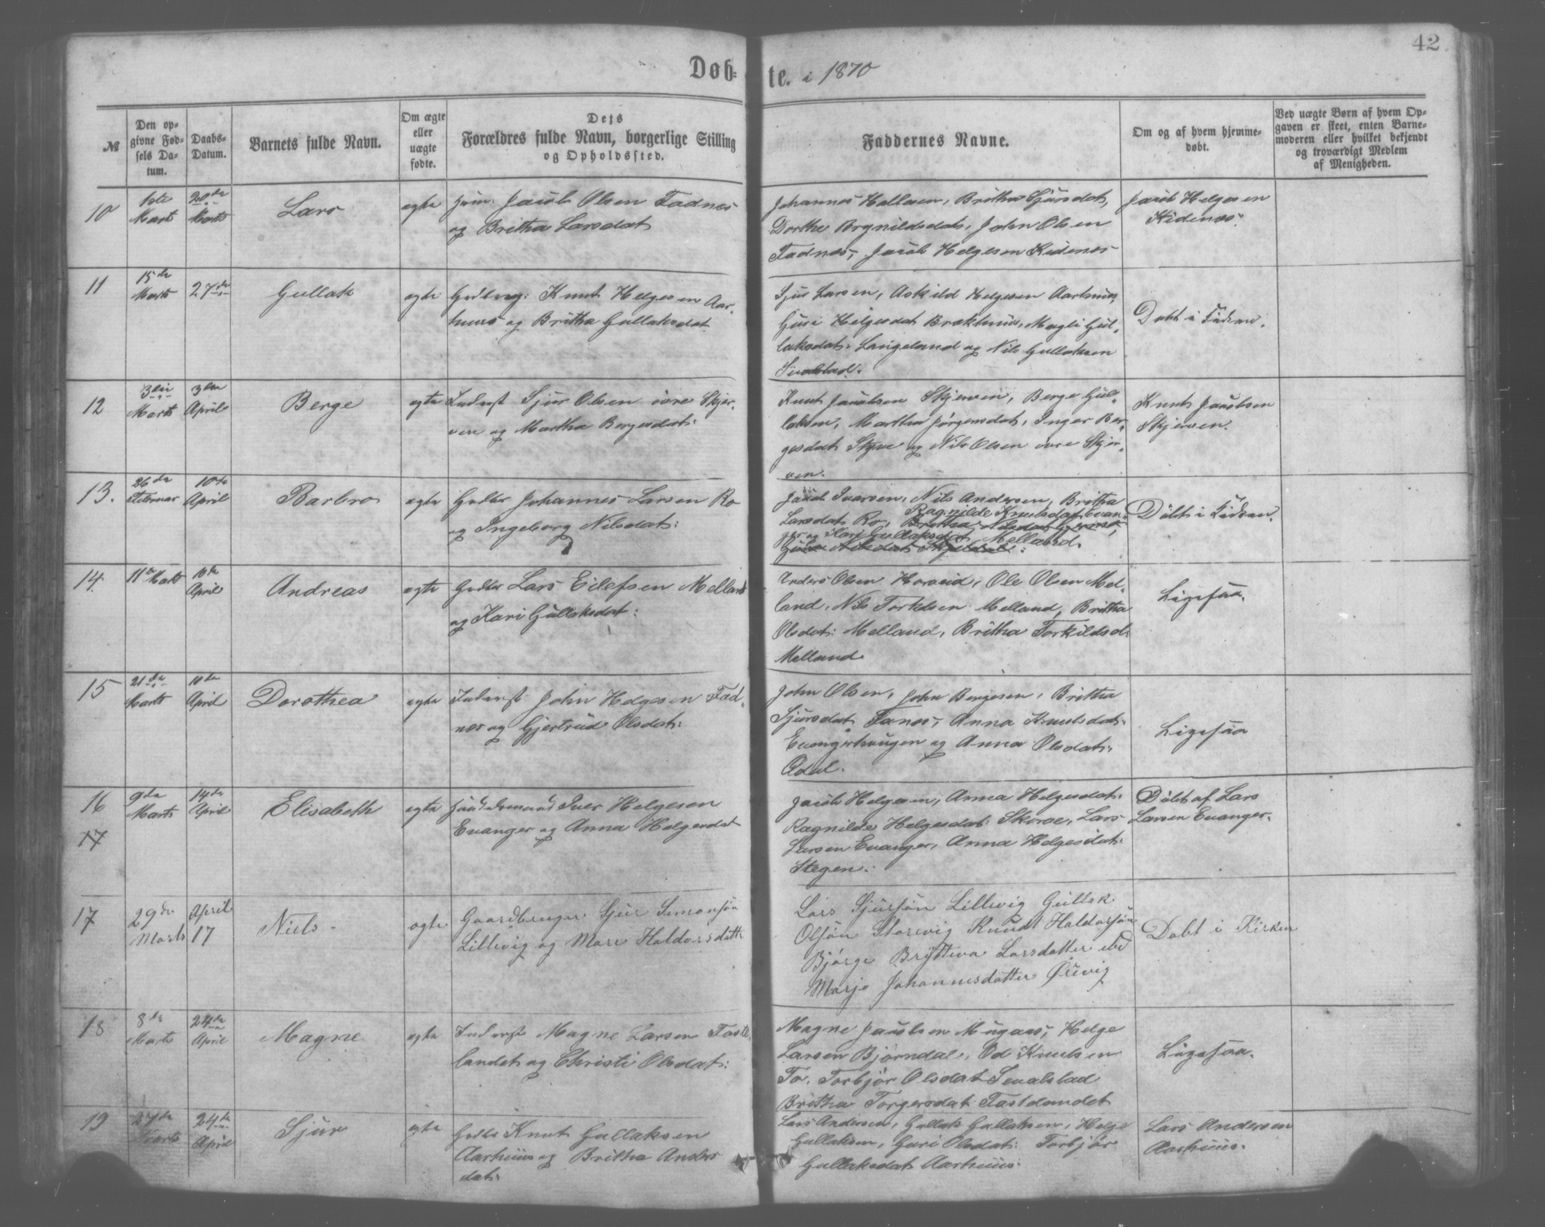 42
Døb-
te. i 1870
№
Den op-
givne Fød-
sels Da-
tum.
Daabs-
Datum.
Barnets fulde Navn.
Om ægte
eller
uægte
fødte.
Dets
Forældres fulde Navn, borgerlige Stilling
og Opholdssted.
Faddernes Navne.
Om og af hvem hjemme-
døbt.
Ved uægte Børn af hvem Op-
gaven er skeet, enten Barne-
moderen eller hvilket bekjendt
og troværdigt Medlem
af Menigheden.
10
1ste
Marts
20de
Marts
Lars
egte
Jacob Olsen Fadnes
og Britha Larsdat
Johannes Helleen, Britha Sjursdat,
Dorthe Brynildsdat, John Olsen
Fadnes, Jacob Helgesen Kidenæs
Jacob Helgesen
Kidenæs
11
15de
Marts
27de
Gullak
egte
Knut Helgesen Aar-
huus og Britha Gullaksdat
Sjur Larsen, Askild Helgesen Aarhuus,
Guri Helgesdat Brækhuus, Magli Gul-
laksdat Langeland og Nils Gullaksen
Døbt i Kirken.
12
3die
Marts
3die
April
Berge
egte
Inderst Sjur Olsen øvre Skjer-
ven og Martha Bergesdat:
Knut Jacobsen Skjerven, Berge Gul-
laksen, Martha Jørgensdat, Inger Ber-
gesdat Skjerve og Nils Olsen øvre Skjer-
ven.
Knut Jacobsen
Skjerven.
13.
26de
Februar
10de
April
Barbro
egte
Gbr Johannes Larsen Ro
og Ingeborg Nilsdat:
Jacob Iversen, Nils Andersen, Britha
Larsdat Ro, Ragnilde Knutsdat Evan-
ger og Kari Gullaksdat Melland.
Døbt i Kirken.
14.
11te Marts
10de
April
Andreas
egte
Lars Eilefsen Melland
og Kari Gullaksdat:
Anders Olsen Horveid, Ole Olsen Mel-
land, Nils Torkilsen Melland, Britha
Olsdat: Melland, Britha Torkildsd:
Melland
Ligesaa.
15
21de
Marts
10de
April
Dorothea
egte
Inderst John Helgesen Fad-
nes og Gjertrud Olsdat:
John Olsen, John Bergesen, Britha
Sjursdat Fanes, Anna Knutsdat
Evangerhaugen og Anna Olsdat:
Ligesaa
16
9de
Marts
14de
April
Elisabeth
egte
Iver Helgesen
Evanger og Anna Helgesdat
Jacob Helgesen, Anna Helgesdat:
Ragnilde Helgesdat: Skorve, Lars
Larsen Evanger, Anna Helgesdat:
Stegen.
Døbt af Lars
Larsen Evanger.
17
17
29de
Marts
April
17
Niels
egte
Gaardbruger Sjur Simonsøn
Lillevig og Mari Haldorsdatter
Lars Sjursøn Lillevig Gullek
Olsøn Storevig Knud Haldorsøn
Bjørge Brytteva Larsdatter ibd
Marje Johannesdatter Ørevig
Døbt i Kirken
18
8de
Marts
24de
April
Magne
egte
Inderst Magne Larsen Faste
landet og Christi Olsdat:
Magne Jacobsen Mugaas, Helge
Larsen Bjørndal, Od Knutsen
Fo. Torbjør Olsdat
Britha Torgersdat Fastelandet
Ligesaa.
19
27de
Marts
24de
April
Sjur
egte
Knut Gullaksen
Aarhuus og Britha Anders
dat:
Lars Andersen, Gullak Gullaksen, Helge
Gullaksen, Guri Olsdat: Torbjør
Gullaksdat Aarhuus.
Lars Andersen
Aarhuus.